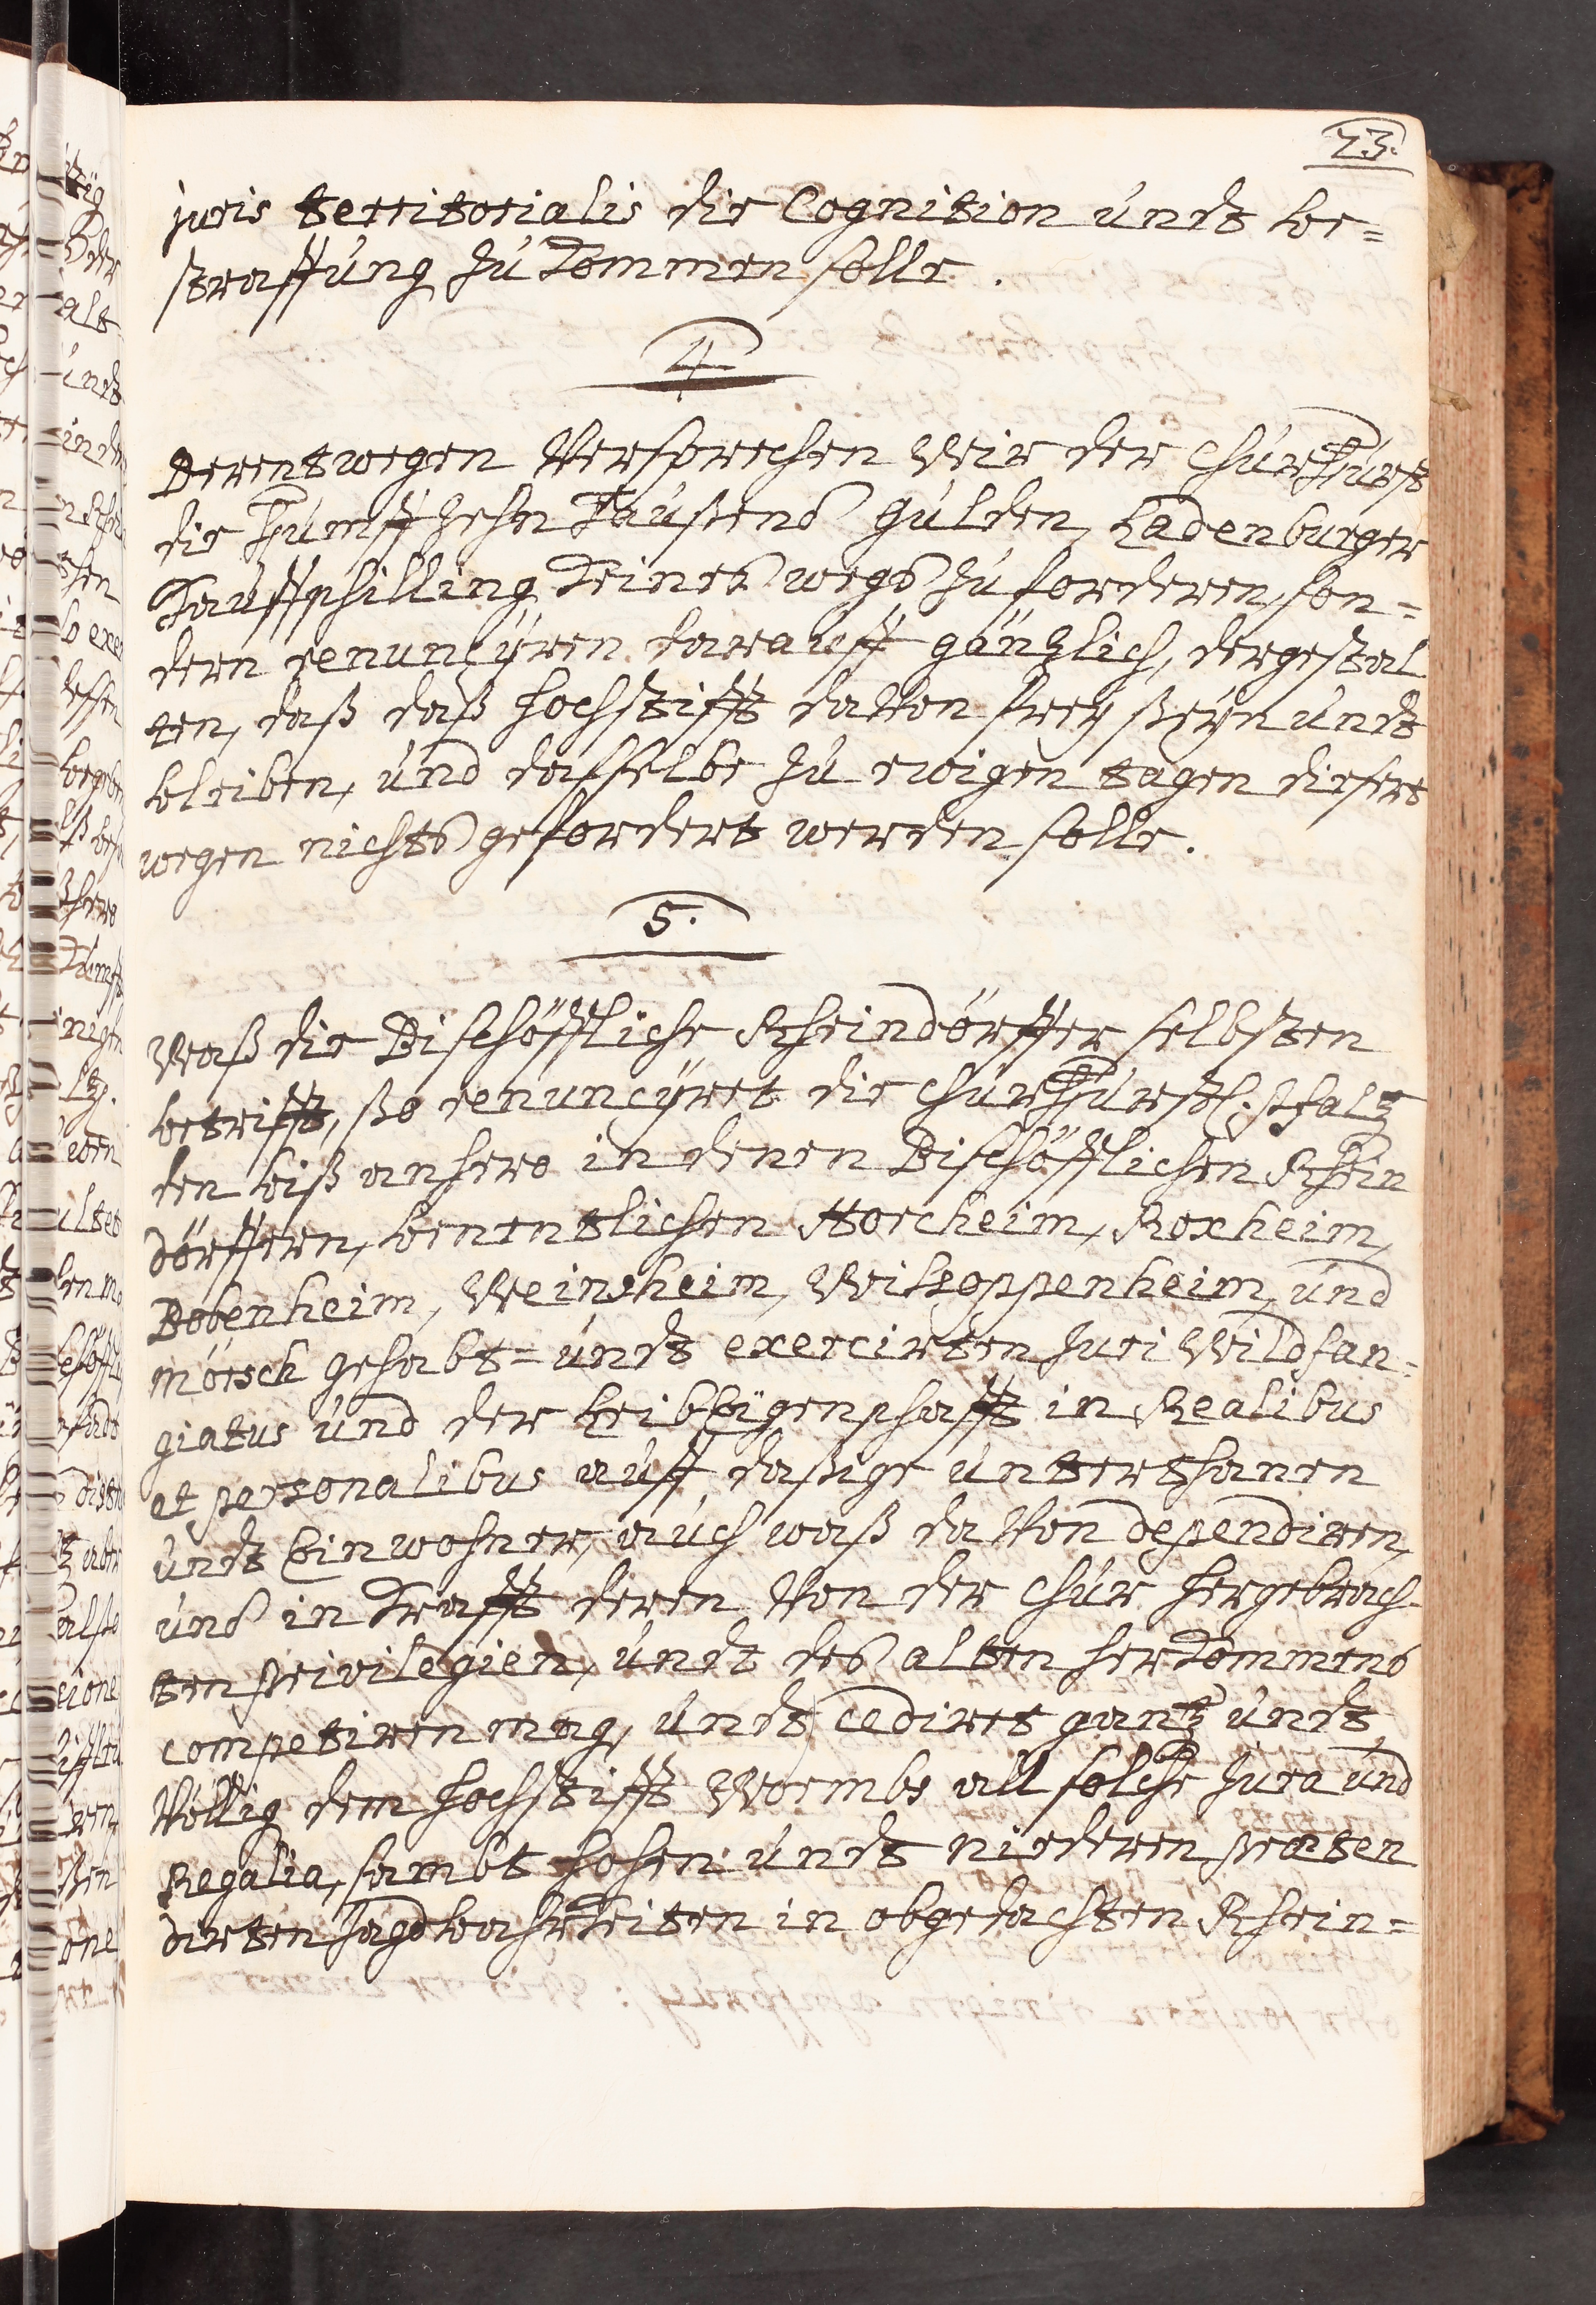 23.
juris territorialis die Cognition undt be=
straffung zu kommen solle.
4.
Derentwegen Versprechen Wir der ChurFürst
die Fümff zehn Taußend gulden, Ladenburger
Kauffschilling keines wegs zu forderen, son=
dern renuncÿren darauff gäntzlich, dergestal
ten, daß daß hochstifft davon freÿ seÿn undt
bleiben, und dasselbe zu ewigen tagen diesert
wegen nichts gefordert werden solle.
5.
Waß die Bischöffliche Rheindörffer selbsten
betrifft, so renuncÿret die ChurFürstl: Pfaltz
den biß anhero in denen Bischöfflichen Rhein
dörffern, benentlichen Horcheim, Roxheim,
Bobenheim, Weinsheim, Wißoppenheim, und
mörsch gehabt= undt exercirten Juri Wildfan=
giatus und der Leibeigenschafft in Realibus
et personalibus auff daßige unterthanen
undt Einwohner, auch waß davon dependiren,
und in krafft deren Von der Chur hergebrach-
ten privilegien, undt des alten herkommens
competiren mag, undt cediret gantz undt
Völlig dem hochstifft Wormbs all solche Jura und
Regalia, sambt hohen undt niederen præten
dirten Jagdbahrkeiten in obgedachten Rhein=